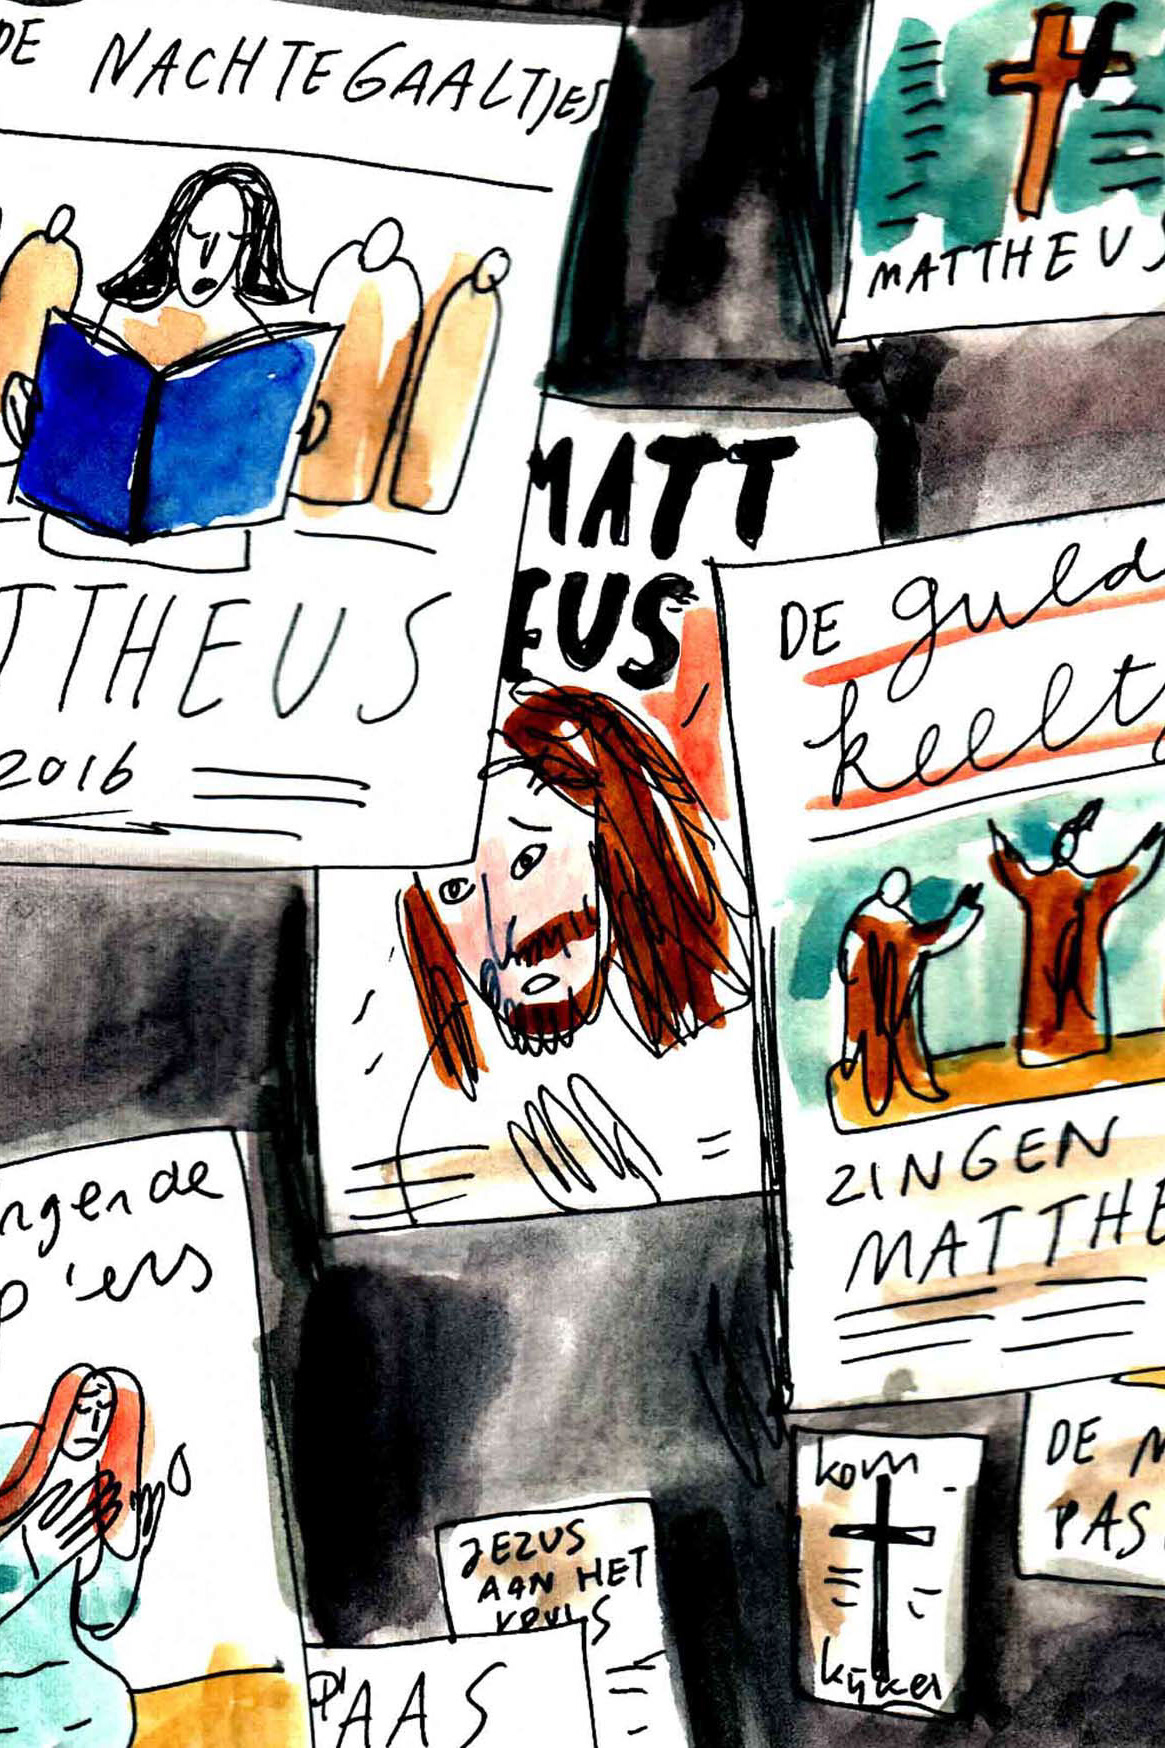 DE NACHTEGAALTJES
TTHEUS
2016
MATTHEUS
MATT
EUS
DE guld
keeltj
ZINGEN
MATTHE
ngende
p'ers
JEZUS
AAN HET
KRUIS
PAAS
kom
kijken
DE M
PAS